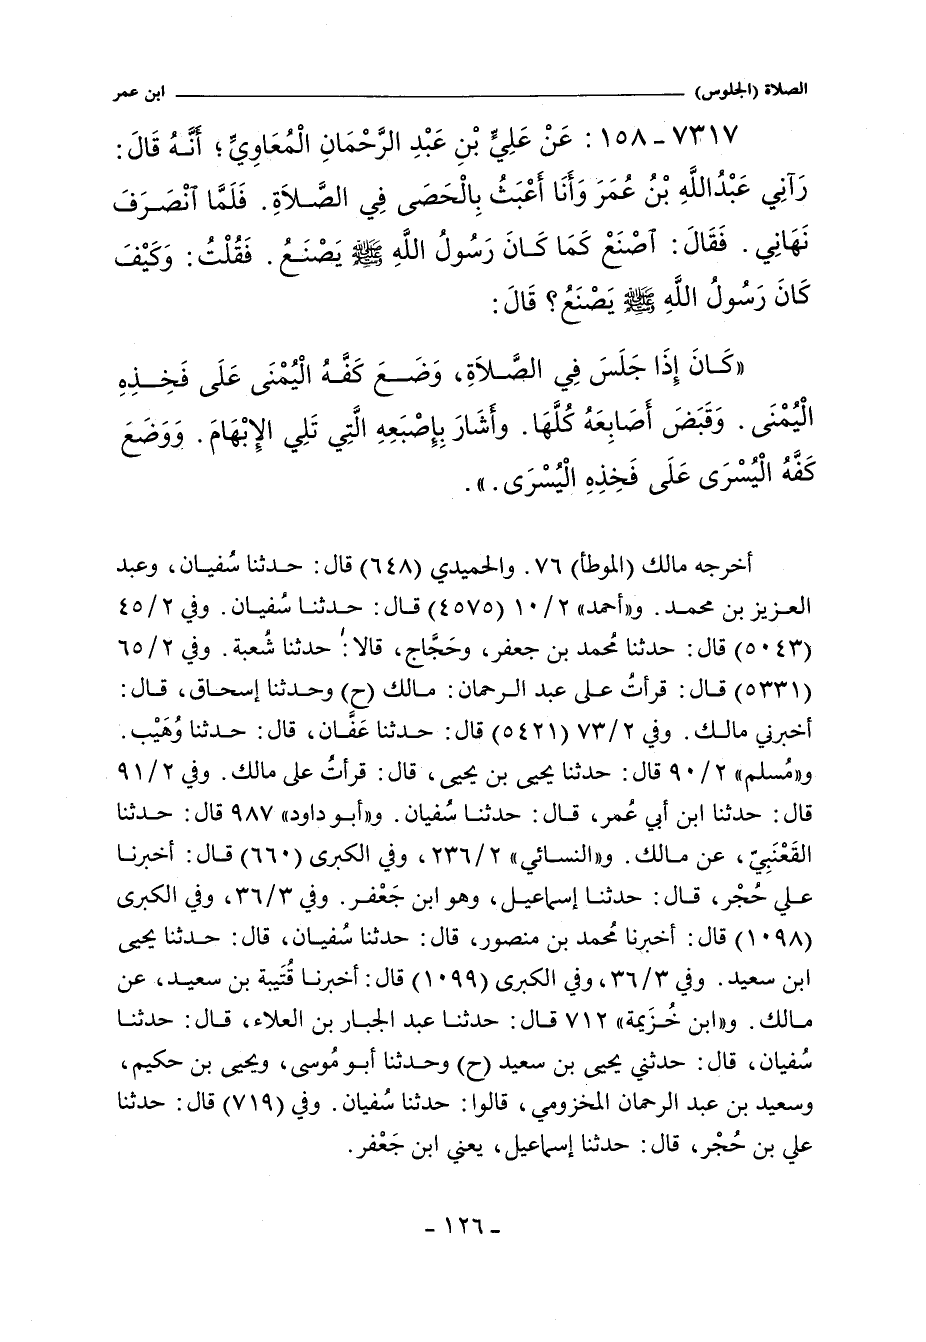 الصلاة (الجلوس) ابن عمر
٧٣١٧ - ١٥٨ : عَنْ عَلِيِّ بْنِ عَبْدِ الرَّحْمَانِ الْمُعَاوِيِّ؛ أَنَّهُ قَالَ:
رَآنِي عَبْدُاللَّهِ بْنُ عُمَرَ وَأَنَا أَعْبَثُ بِالْحَصَى فِي الصَّلاَةِ. فَلَمَّا آنْصَرَفَ
نَهَانِي. فَقَالَ: آصْنَعْ كَمَا كَانَ رَسُولُ اللَّهِ ﷺ يَصْنَعُ. فَقُلْتُ: وَكَيْفَ
كَانَ رَسُولُ اللَّهِ ﷺ يَصْنَعُ؟ قَالَ:
«كَانَ إِذَا جَلَسَ فِي الصَّلاَةِ، وَضَعَ كَفَّهُ الْيُمْنَى عَلَى فَخِذِهِ
الْيُمْنَى. وَقَبَضَ أَصَابِعَهُ كُلَّهَا. وأَشَارَ بِإِصْبَعِهِ الَّتِي تَلِي الإِبْهَامَ. وَوَضَعَ
كَفَّهُ الْيُسْرَى عَلَى فَخِذِهِ الْيُسْرَى.».
أخرجه مالك (الموطأ) ٧٦. والحميدي (٦٤٨) قال: حدثنا سُفيان، وعبد
العزيز بن محمد. و«أحمد» ١٠/٢ (٤٥٧٥) قال: حدثنا سُفيان. وفي ٤٥/٢
(٥٠٤٣) قال: حدثنا مُحمد بن جعفر، وحَجَّاج، قالا: حدثنا شُعبة. وفي ٦٥/٢
(٥٣٣١) قال: قرأتُ على عبد الرحمان: مالك (ح) وحدثنا إسحاق، قال:
أخبرني مالك. وفي ٧٣/٢ (٥٤٢١) قال: حدثنا عَفَّان، قال: حدثنا وُهَيْب.
و«مُسلم» ٩٠/٢ قال: حدثنا يحيى بن يحيى، قال: قرأتُ على مالك. وفي ٩١/٢
قال: حدثنا ابن أبي عُمر، قال: حدثنا سُفيان. و«أبو داود» ٩٨٧ قال: حدثنا
القَعْنَبِيّ، عن مالك. و«النسائي» ٢٣٦/٢، وفي الكبرى (٦٦٠) قال: أخبرنا
علي حُجْر، قال: حدثنا إسماعيل، وهو ابن جَعْفر. وفي ٣٦/٣، وفي الكبرى
(١٠٩٨) قال: أخبرنا مُحمد بن منصور، قال: حدثنا سُفيان، قال: حدثنا يحيى
ابن سعيد. وفي ٣٦/٣، وفي الكبرى (١٠٩٩) قال: أخبرنا قُتَيبة بن سعيد، عن
مالك. و«ابن خُزَيمة» ٧١٢ قال: حدثنا عبد الجبار بن العلاء، قال: حدثنا
سُفيان، قال: حدثني يحيى بن سعيد (ح) وحدثنا أبو مُوسى، ويحيى بن حكيم،
وسعيد بن عبد الرحمان المخزومي، قالوا: حدثنا سُفيان. وفي (٧١٩) قال: حدثنا
علي بن حُجْر، قال: حدثنا إسماعيل، يعني ابن جَعْفر.
- ١٢٦ -